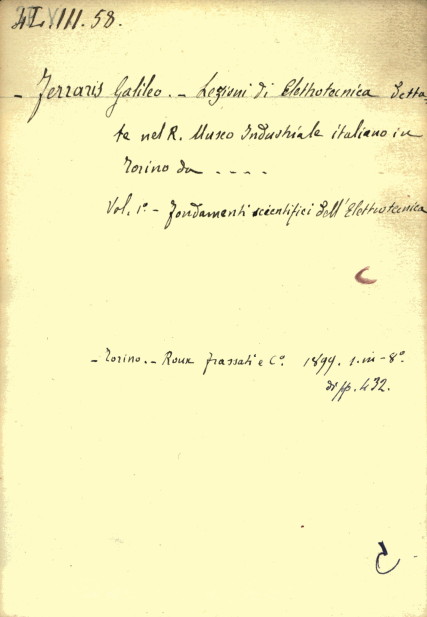 LXIII. 58.
- Ferraris Galileo. - Lezioni di Elettrotecnica detta-
te nel R. Museo Industriale italiano in
Torino da - - - -
Vol. 1º - Fondamenti scientifici dell'Elettrotecnica
- Torino. - Roux Frassati e Cº. 1899. 1. in - 8º.
di pp. 432.